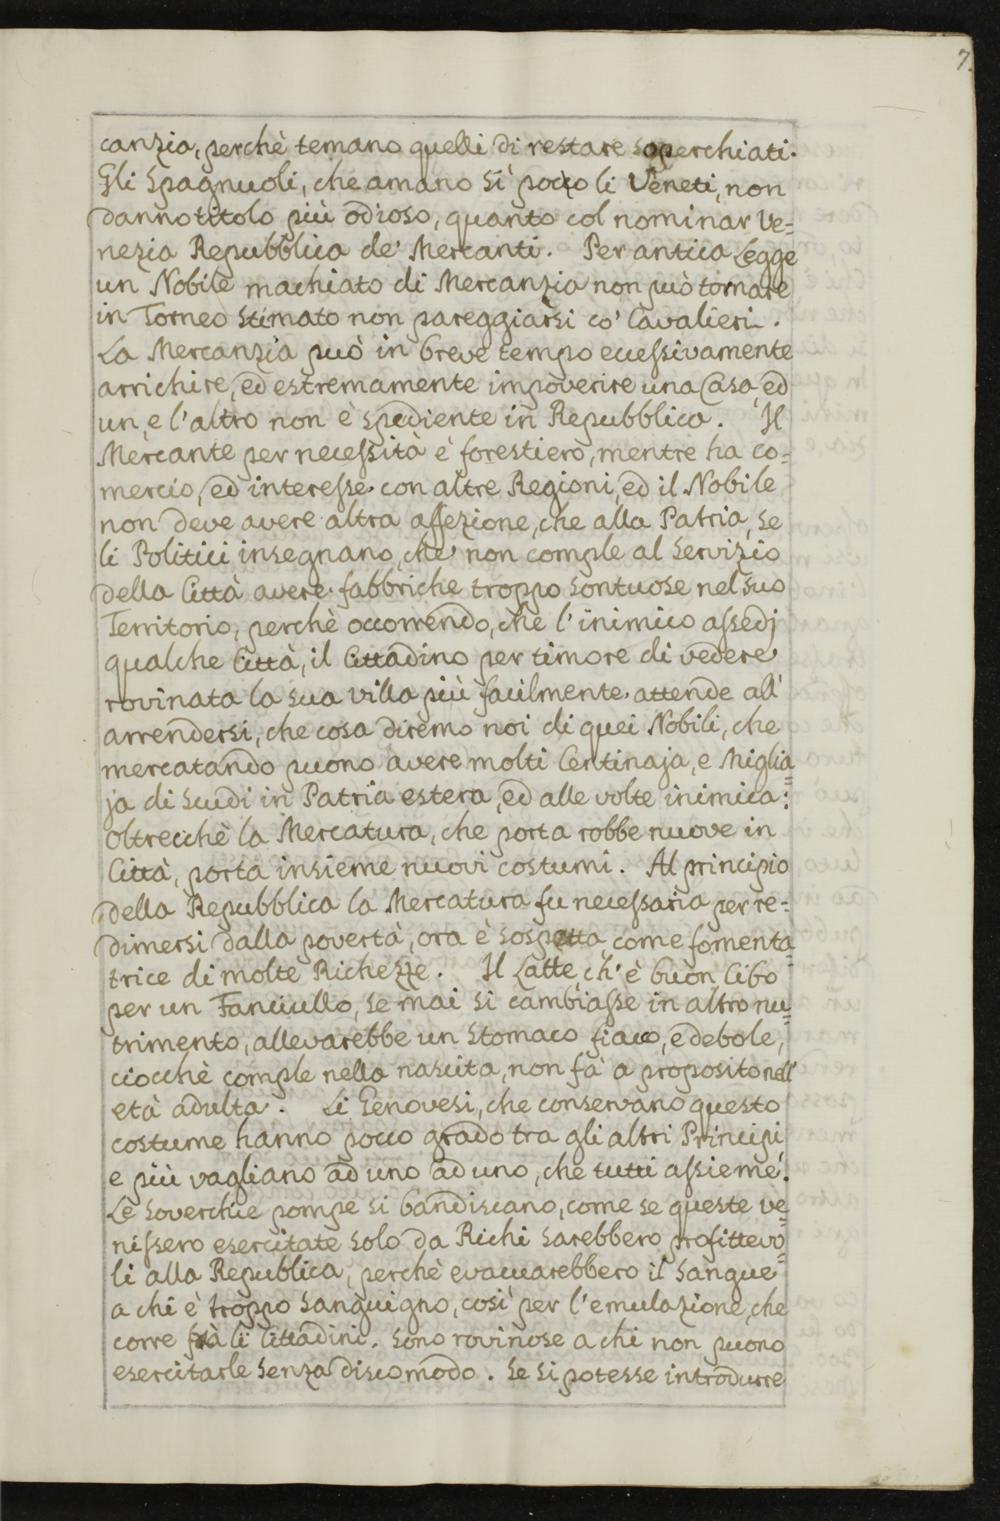 7.
canzia, perchè temano quelli di restare soperchiati.
Gli Spagnuoli, che amano sì pocco li Veneti, non
danno titolo più odioso, quanto col nominar Ve=
nezia Repubblica de' Mercanti. Per antica Legge
un Nobile machiato di Mercanzia non può tornare
in Torneo stimato non pareggiarsi co' Cavalieri.
La Mercanzia può in breve tempo ecessivamente
arrichire, ed estremamente impoverire una Casa, ed
un, e l'altro non è spediente in Repubblica. Il
Mercante per necessità è forestiero, mentre ha co=
mercio, ed interesse con altre Regioni, ed il Nobile
non deve avere altra affezione, che alla Patria, se
li Politici insegnano, che non comple al servizio
della Città avere fabbriche troppo sontuose nel suo
Territorio, perchè occorrendo, che l'inimico assedj
qualche Città, il Cittadino per timore di vedere
rovinata la sua villa più facilmente attende all'
arrendersi, che cosa diremo noi di quei Nobili, che
mercatando puono avere molti Centinaja, e Miglia=
ja di Scudi in Patria estera, ed alle volte inimica:
oltrecchè la Mercatura, che porta robbe nuove in
Città, porta insieme nuovi costumi. Al principio
della Repubblica la Mercatura fu necessaria per re=
dimersi dalla povertà, ora è sospetta come fomenta=
trice di molte Richezze. Il Latte, ch'è buon Cibo
per un Fanciullo, se mai si cambiasse in altro nu=
trimento, allevarebbe un stomaco fiaco, e debole,
ciocchè comple nella nascita, non fà a proposito nell'
età adulta. Li Genovesi, che conservano questo
costume hanno pocco grado tra gli altri Principi
e più vagliano ad uno ad uno, che tutti assieme.
Le soverchie pompe si bandiscano, come se queste ve=
nissero esercitate solo da Richi sarebbero profittevo=
li alla Republica, perchè evacuarebbero il sangue
a chi è troppo sanguigno, così per l'emulazione, che
corre frà li Cittadini. Sono rovinose a chi non puono
esercitarle senza discomodo. Se si potesse introdurre